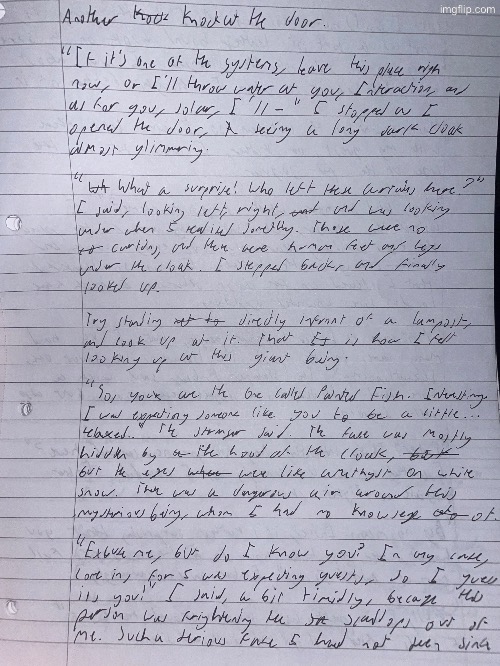 imgflip.com
Another Knock at the door.
"If it's one of the systems, leave this place right
now, or I'll throw water at you, Interaction, and
as for you, solar, I'll – " I stopped as I
opened the door, seeing a long dark cloak
almost glimmering.
"What a surprise! Who left these curtains here?"
I said, looking left, right, and was looking
under when I realised something. Those were no
curtains, and there were human feet and legs
under the cloak. I stepped back, and finally
looked up.
Try standing directly infront of a lampost,
and look up at it. That is how I felt
looking up at this giant being.
"So, you are the one called Painted Fish. Interesting.
I was expecting someone like you to be a little...
relaxed." The stranger said. The face was mostly
hidden by the hood of the cloak,
but the eyes were like amethyst on white
snow. There was a dangerous aim around this
mysterious being, whom I had no knowlege of.
"Excuse me, but do I know you? In any case,
come in, for I was expecting guests, so I guess
its you!" I said, a bit timidly, because this
person was frightening the scallops out of
me. Such a serious face I had not seen since